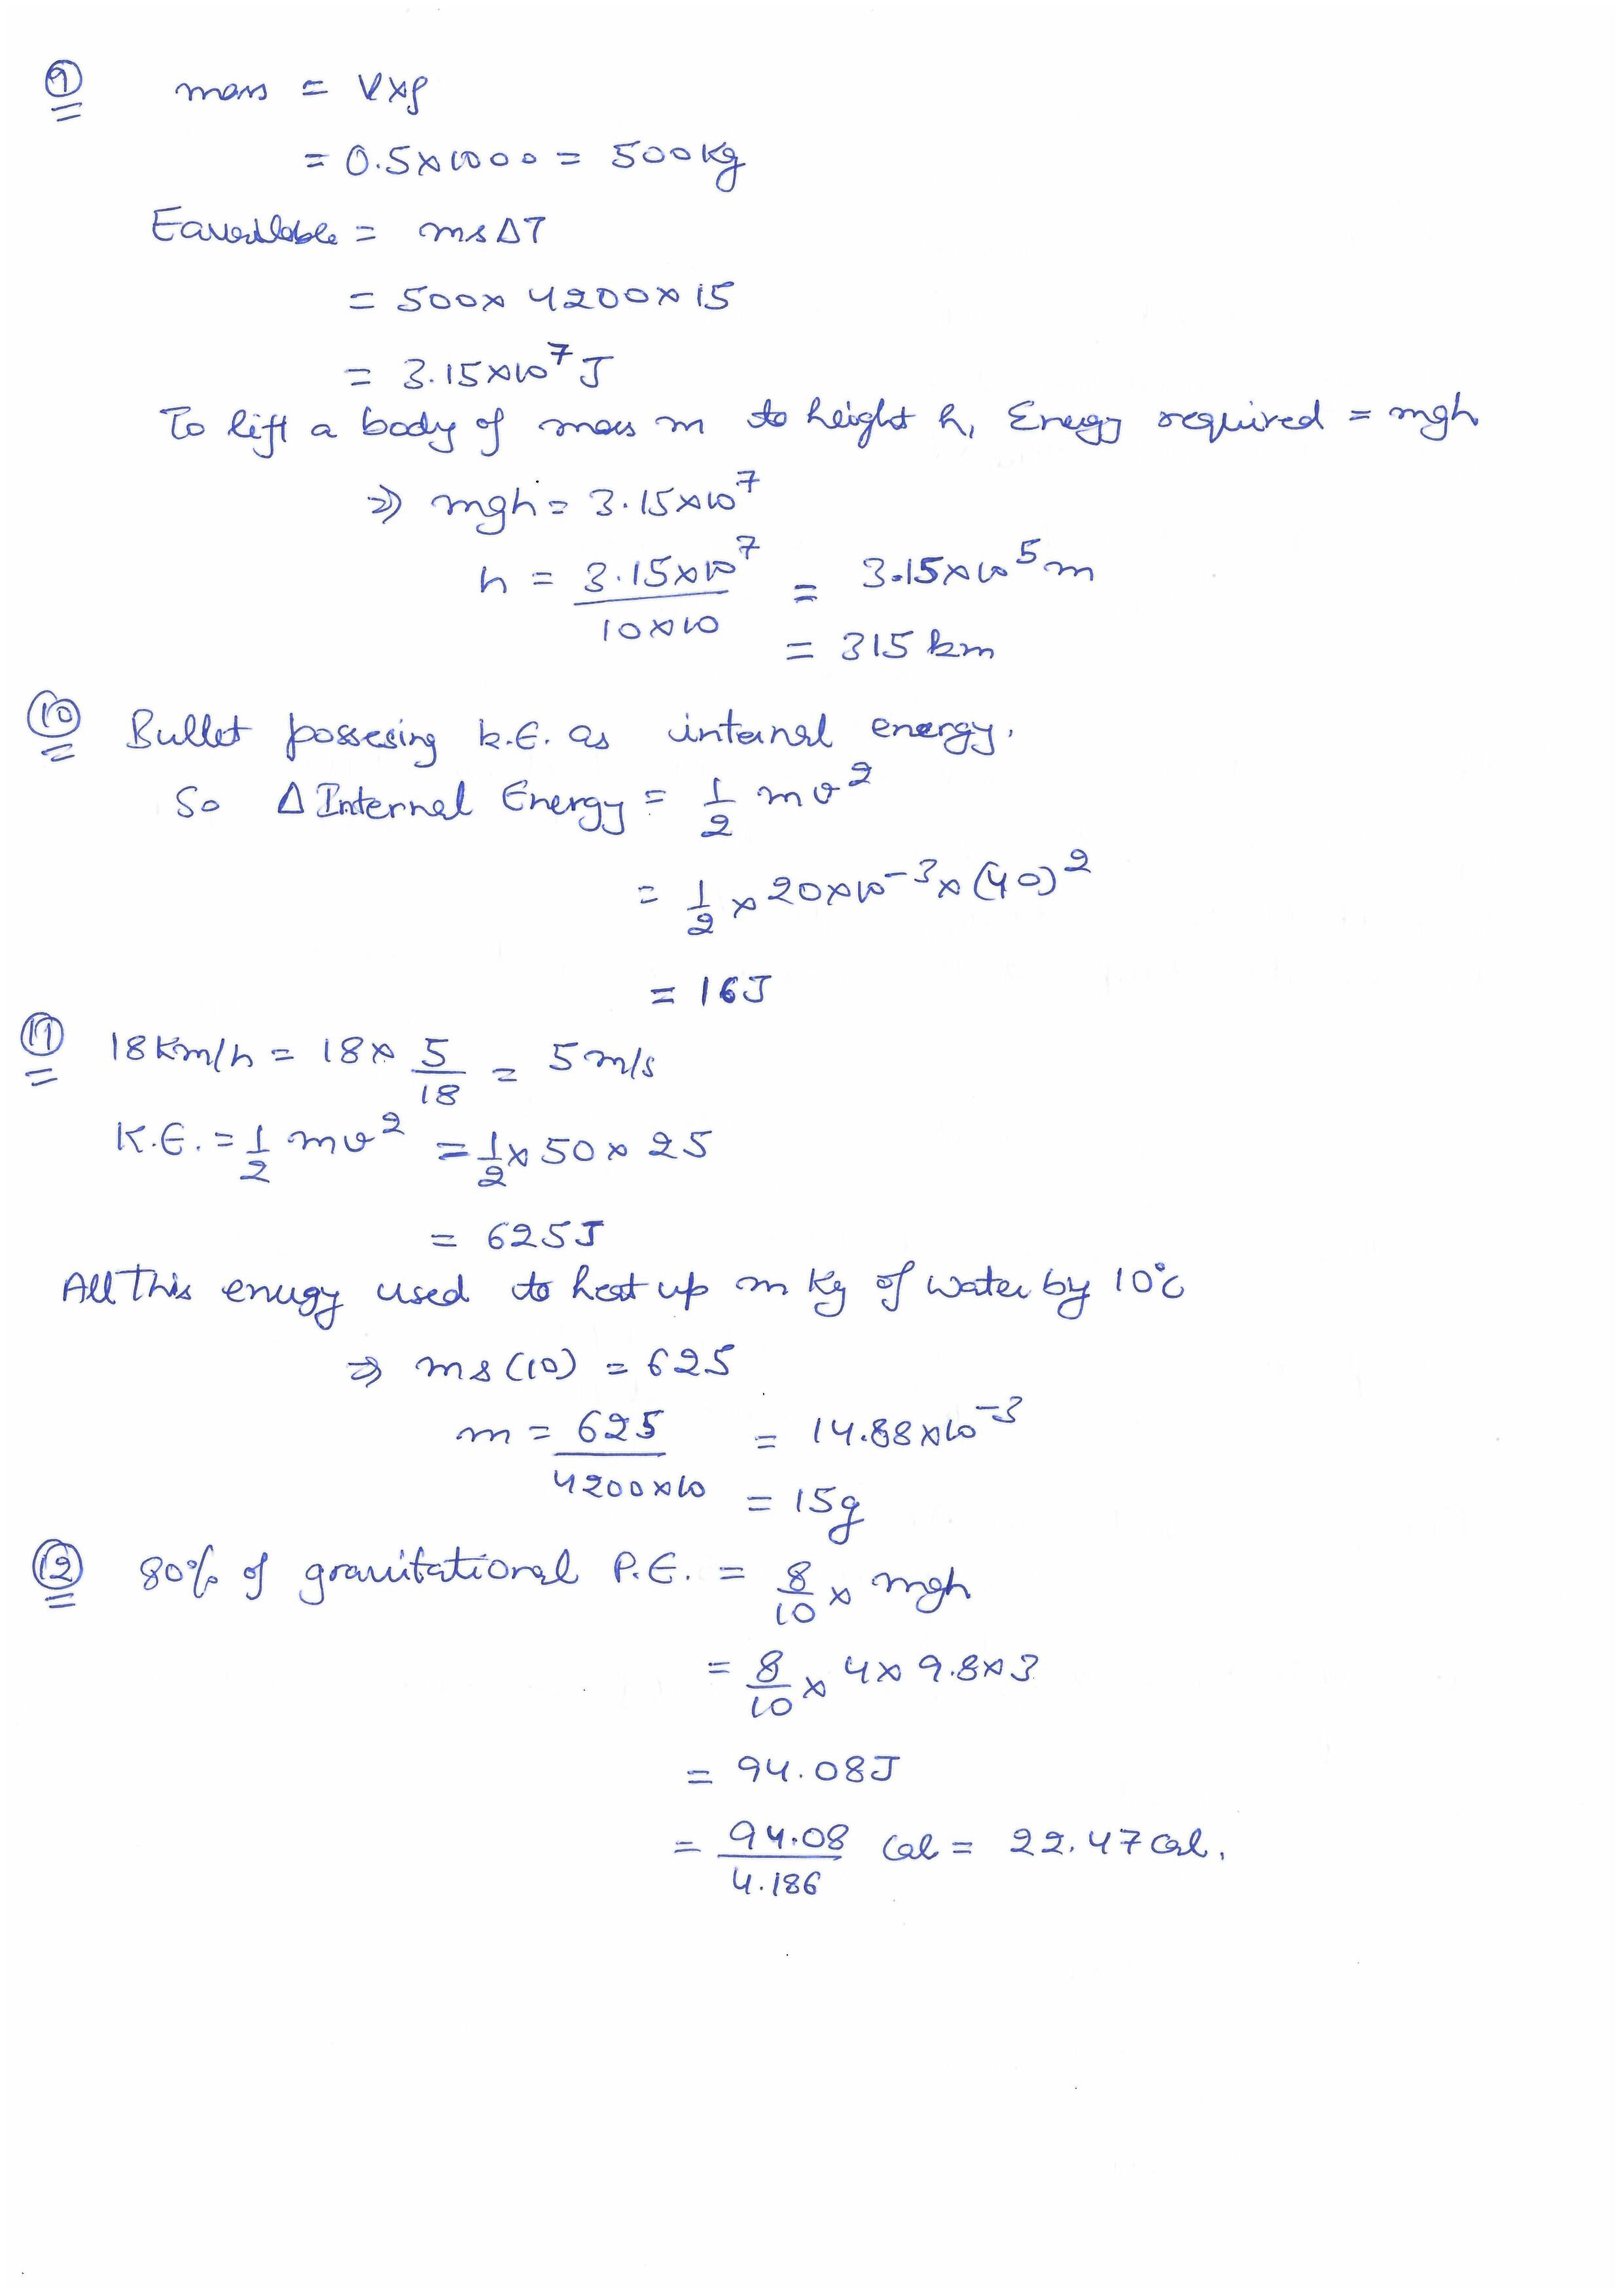 9 mass = V×ρ
= 0.5×1000 = 500kg
Eavailable = msΔT
= 500× 4200×15
= 3.15×10⁷ J
To lift a body of mass m to height h, Energy required = mgh
⇒ mgh = 3.15×10⁷
h = 3.15×10⁷/10×10 = 3.15×10⁵ m
= 315 km
10 Bullet possesing k.E. as internal energy.
So Δ Internal Energy = 1/2 mv²
= 1/2 × 20×10⁻³ × (40)²
= 16J
11 18Km/h = 18× 5/18 = 5 m/s
K.E. = 1/2 mv² = 1/2 × 50 × 25
= 625J
All This energy used to heat up m Kg of water by 10°C
⇒ ms (10) = 625
m = 625/4200×10 = 14.88×10⁻³
= 15g
12 80% of gravitational P.E. = 8/10 × mgh
= 8/10 × 4× 9.8×3
= 94.08J
= 94.08/4.186 Cal = 22.47 Cal.